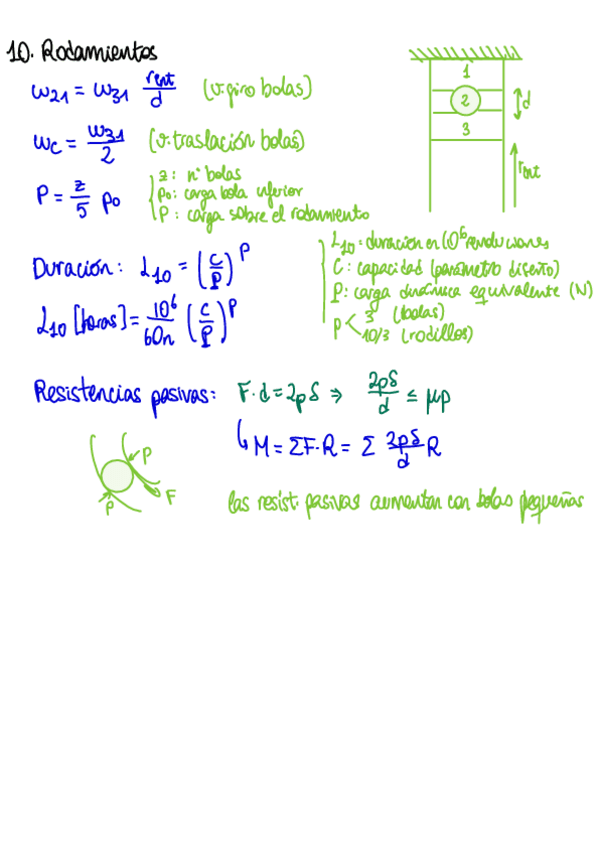 10. Rodamientos
ω21 = ω31 rent/d (v. giro bolas)
ωc = ω31/2 (v. traslación bolas)
P = z/5 p0
z: nº bolas
p0: carga bola inferior
P: carga sobre el rodamiento
1
2
3
d
rent
Duración: L10 = (C/P)^p
L10 [horas] = 10^6/60n (C/P)^p
L10: duración en 10^6 revoluciones
C: capacidad (parámetro diseño)
P: carga dinámica equivalente (N)
p < 3 (bolas)
10/3 (rodillos)
Resistencias pasivas: F·d = 2pδ ⇒ 2pδ/d ≤ μp
↳ M = ΣF·R = Σ 2pδ/d R
P
F
P
las resist. pasivas aumentan con bolas pequeñas